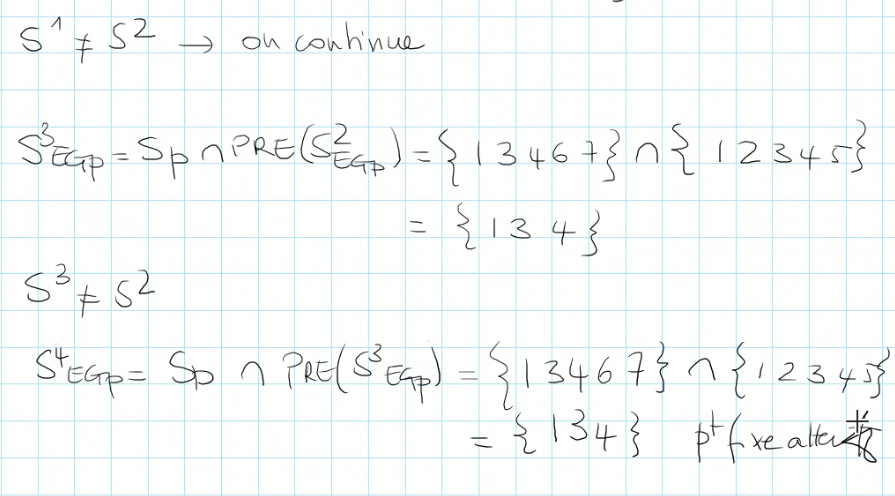 S¹ ≠ S² → on continue
S³EGp = Sp ∩ PRE(S²EGp) = {1 3 4 6 7} ∩ {1 2 3 4 5}
= {1 3 4}
S³ ≠ S²
S⁴EGp = Sp ∩ PRE(S³EGp) = {1 3 4 6 7} ∩ {1 2 3 4 5}
= {1 3 4} pt fixe